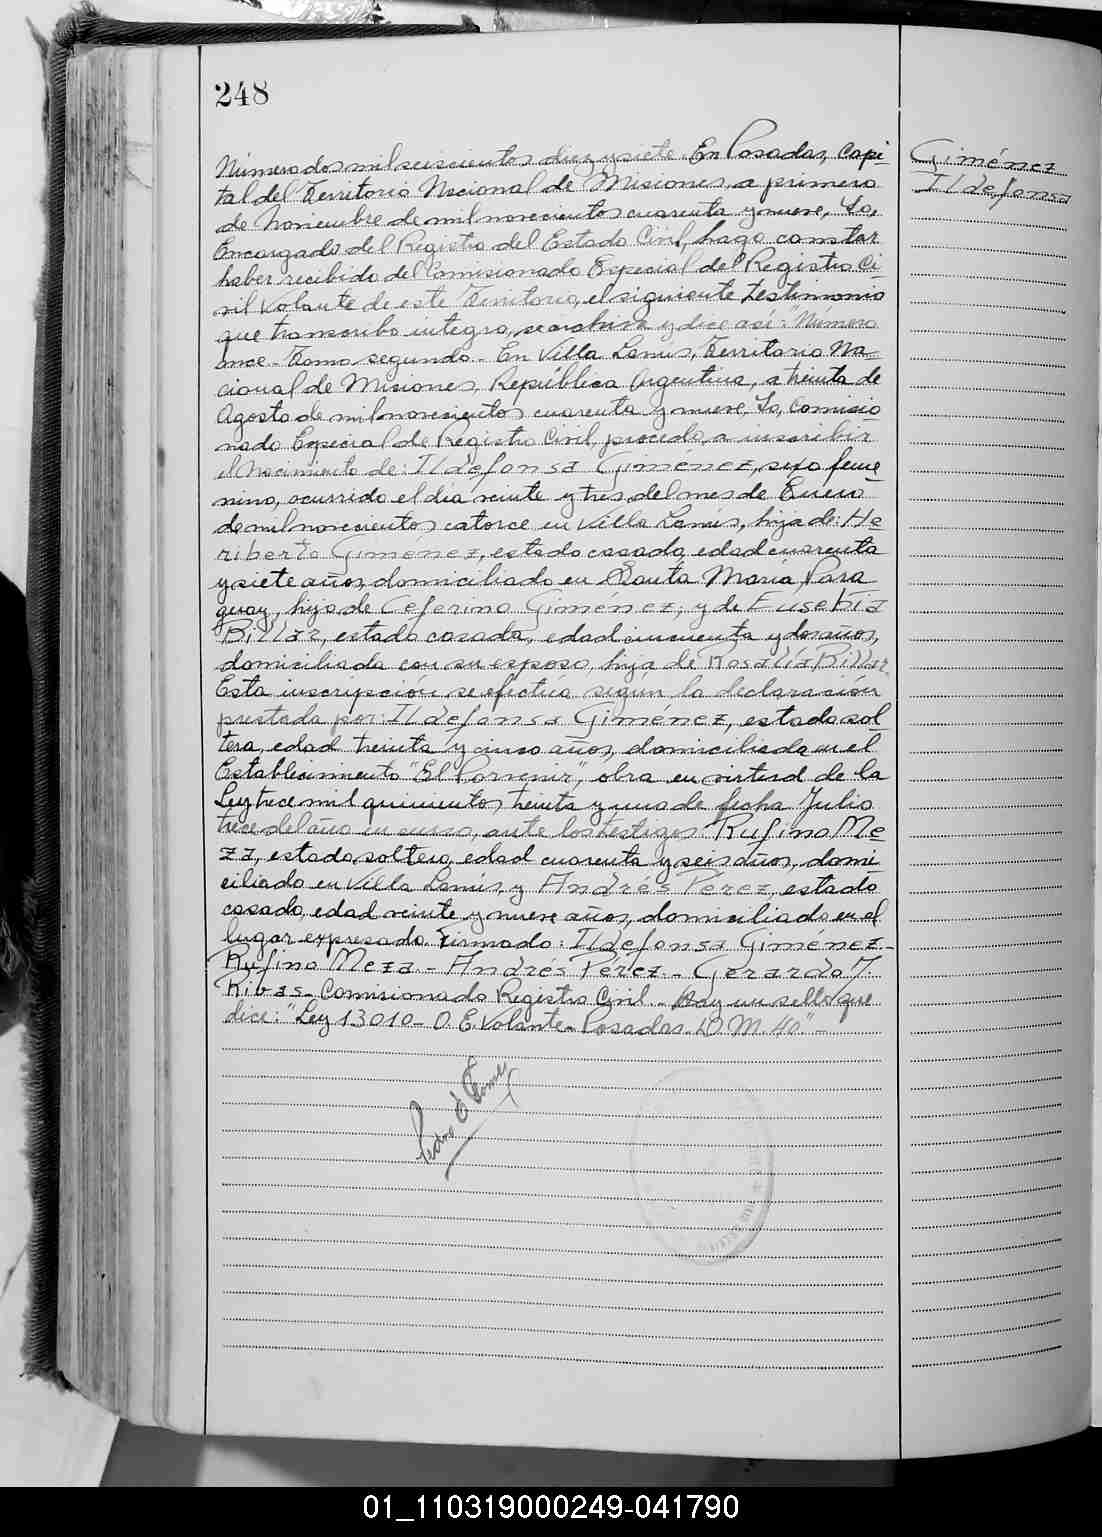 248
Giménez
Ildefonsa
Número dos mil seiscientos diez y siete. En Posadas, Capi-
tal del Territorio Nacional de Misiones, a primero
de Noviembre de mil novecientos cuarenta y nueve, Yo,
Encargado del Registro del Estado Civil, hago constar
haber recibido del Comisionado Especial del Registro Ci-
vil Volante de este Territorio, el siguiente testimonio
que transcribo íntegro, se archiva y dice así: "Número
once - Tomo segundo - En Villa Lanus, Territorio Na-
cional de Misiones, República Argentina, a treinta de
Agosto de mil novecientos cuarenta y nueve, Yo, Comisio
nado Especial de Registro Civil, procedo, a inscribir
el Nacimiento de: Ildefonsa Giménez, sexo feme
nino, ocurrido el día veinte y tres del mes de Enero
de mil novecientos catorce en Villa Lanús, hija de: He
riberto Giménez, estado casado, edad cuarenta
y siete años, domiciliado en Santa María, Para
guay, hijo de Ceferino Giménez; y de Eusebia
Billar, estado casada, edad cincuenta y dos años,
domiciliada con su esposo, hija de Rosalía Billar.
Esta inscripción se efectúa según la declaración
prestada por: Ildefonsa Giménez, estado sol
tera, edad treinta y cinco años, domiciliada en el
Establecimiento "El Porvenir", obra en virtud de la
Ley trece mil quinientos treinta y uno de fecha Julio
trece del año en curso, ante los testigos: Rufino Me
za, estado soltero, edad cuarenta y seis años, domi-
ciliado en Villa Lanús, y Andrés Perez, estado
casado, edad veinte y nueve años, domiciliado en el
lugar expresado. Firmado: Ildefonsa Giménez -
Rufino Meza - Andrés Perez - Gerardo J.
Ribas - Comisionado Registro Civil - Hay un sello que
dice: "Ley 13010 - O. E. Volante - Posadas. D. M. 40" -
Pedro
01_110319000249-041790